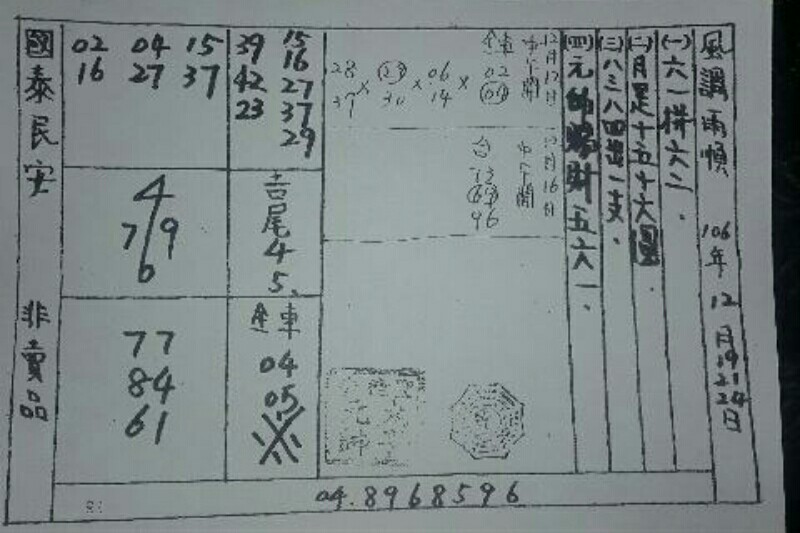 風調雨順 106年 12月19 21 24日
(一)六一拼六二.
(二)月足十五十六圓.
(三)八三八四出一支.
(四)元帥賜財五六一.
12月12日
車
02
04
×
06
14
×
23
30
×
28
37
12月16日
台
13
64
96
39 15
16
42 27
23 37
29
吉尾
4
5.
車
04
05
02 04 15
16 27 37
4
7 9
6
77
84
61
國泰民安 非賣品
04.8968596